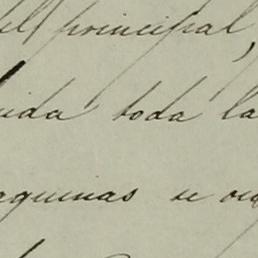 el principal,
uida toda la
aquinas se